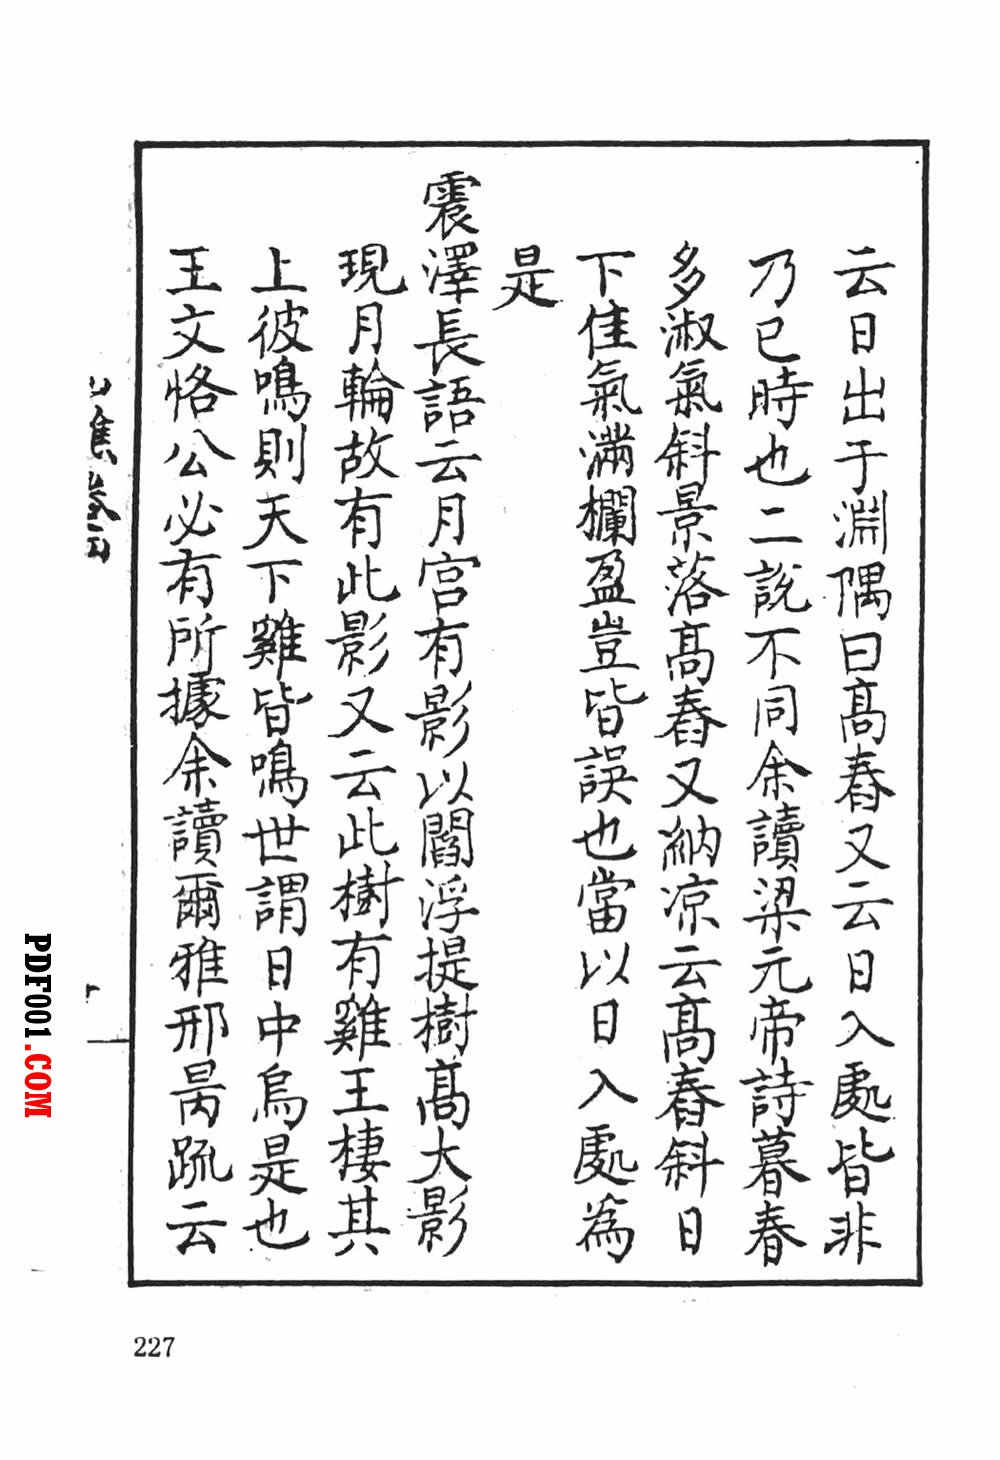 云日出于淵隅曰高舂又云日入處皆非
乃巳時也二說不同余讀梁元帝詩暮春
多淑氣斜景落高舂又納凉云高舂斜日
下佳氣滿欄盈豈皆誤也當以日入處為
是
震澤長語云月宫有影以閻浮提樹高大影
現月輪故有此影又云此樹有雞王棲其
上彼鳴則天下雞皆鳴世謂日中烏是也
王文恪公必有所據余讀爾雅邢昺疏云
227
PDF001.COM